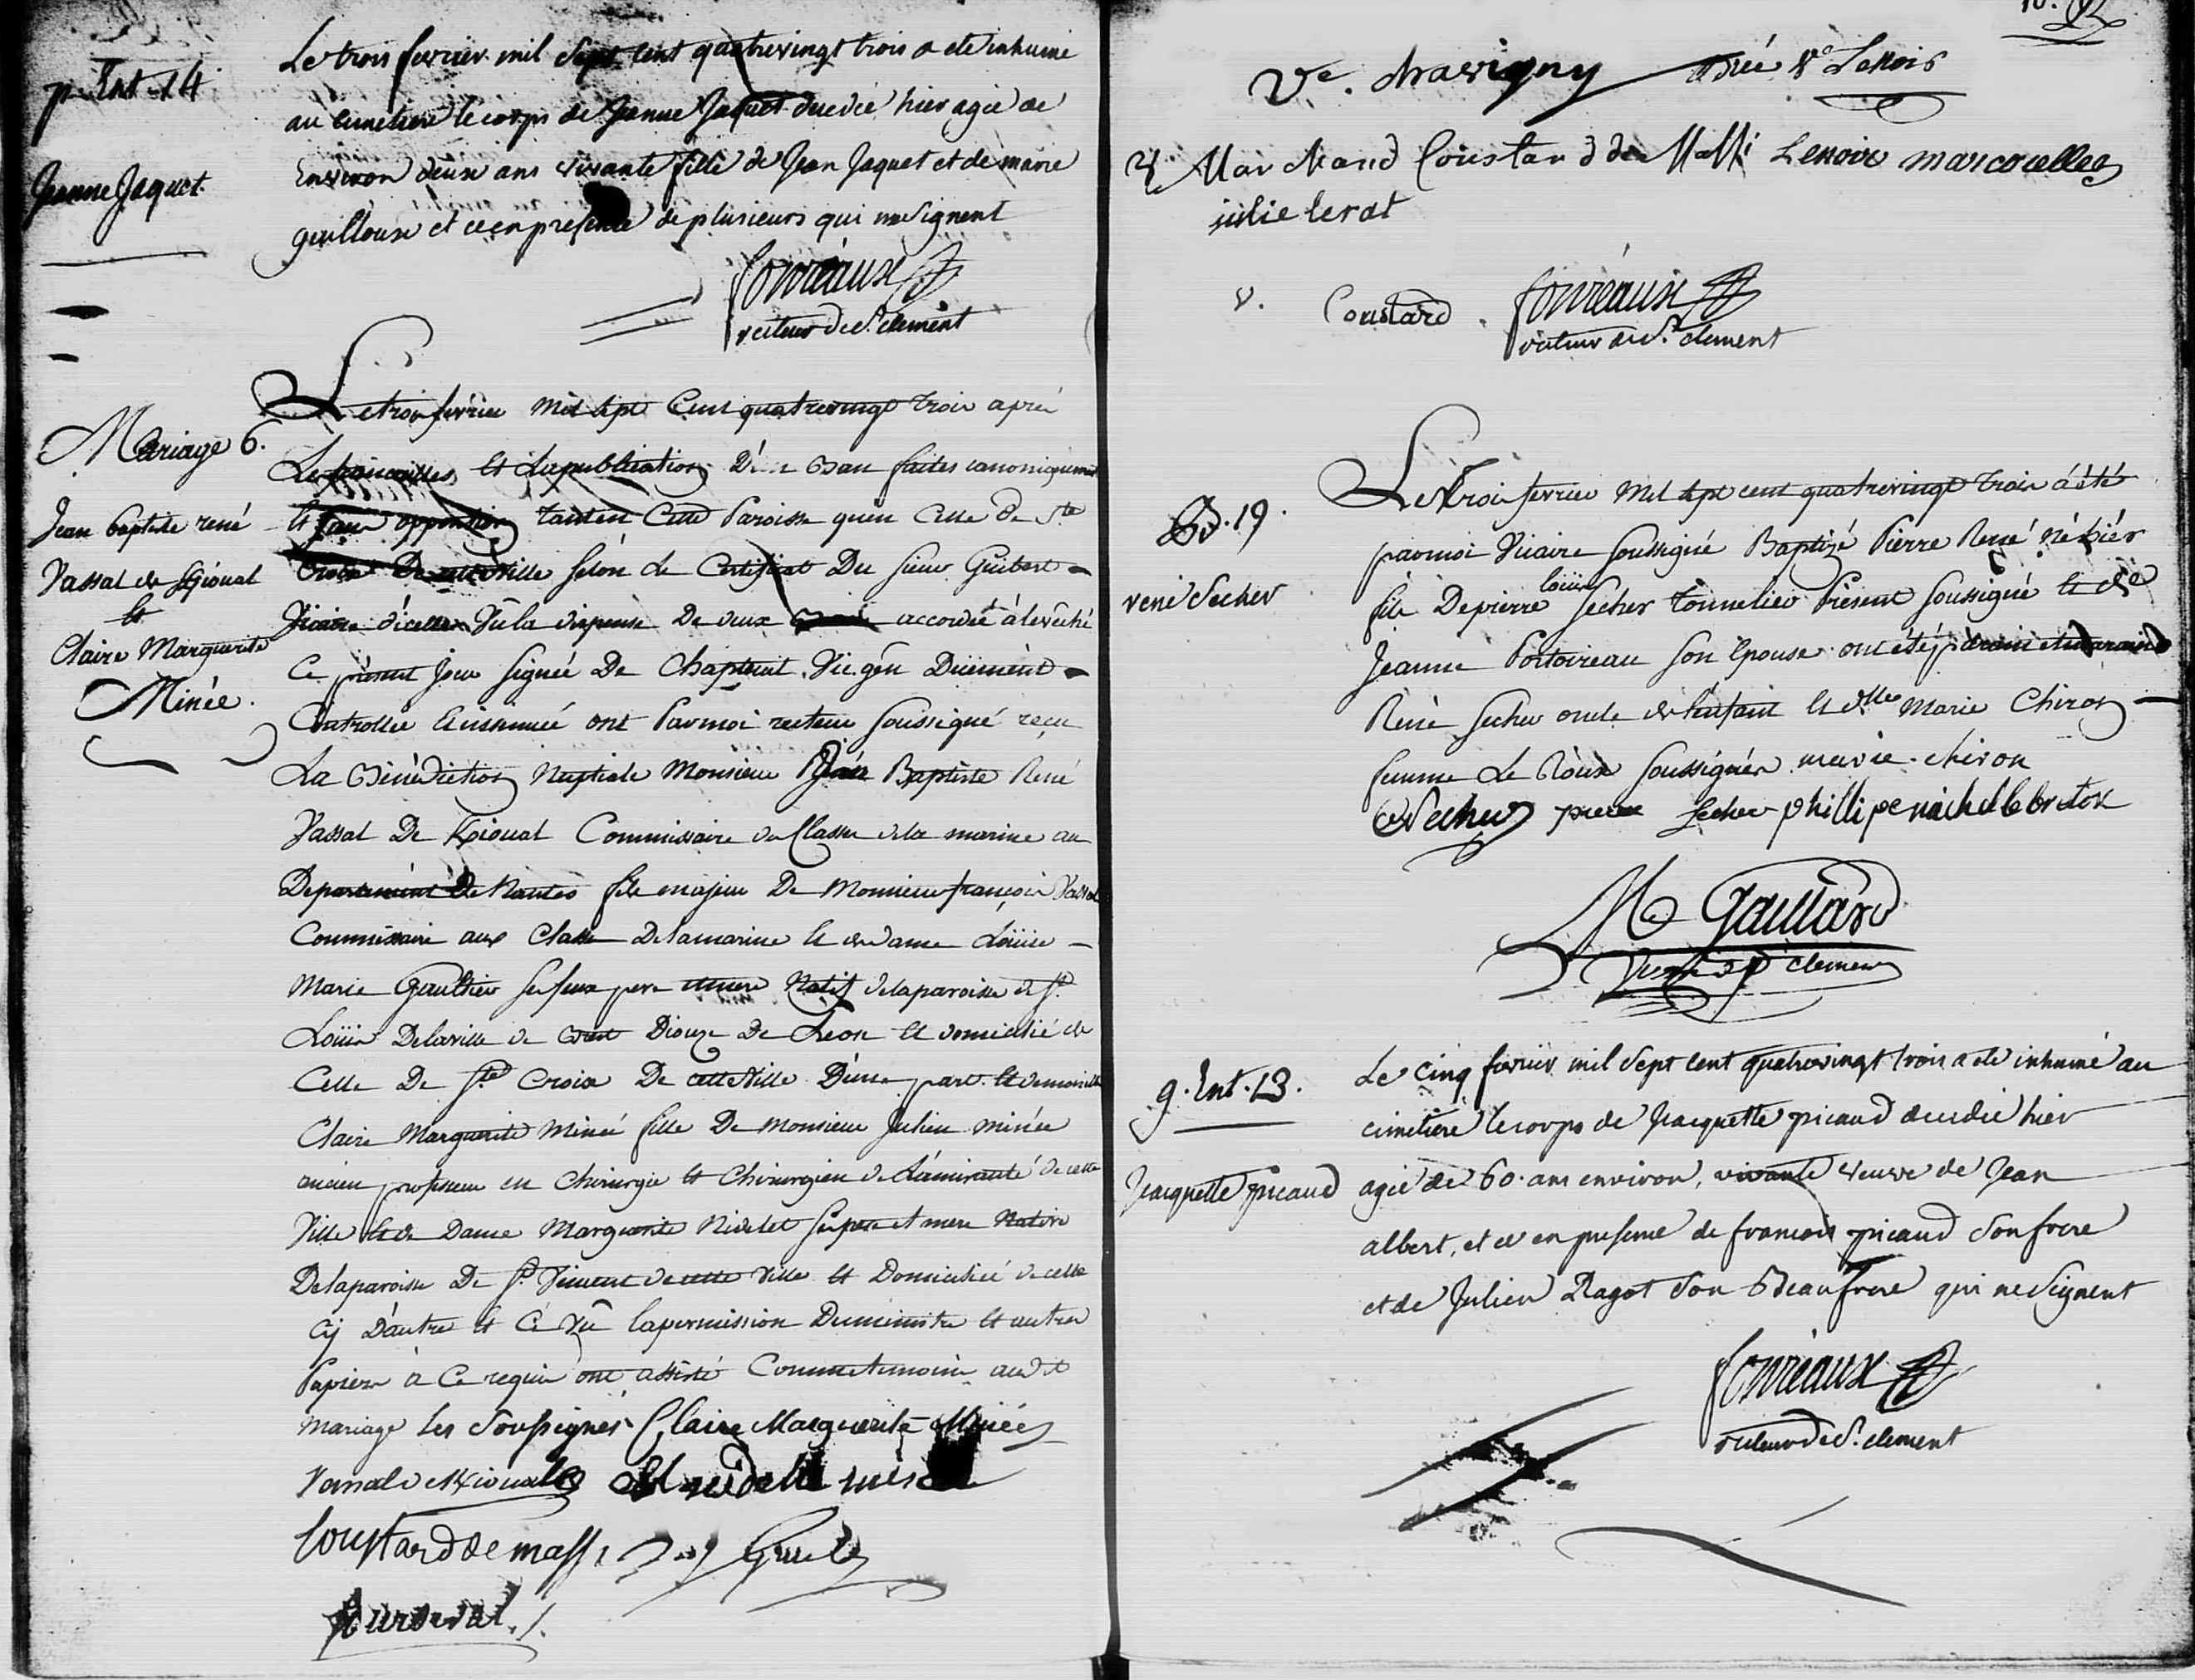 p. Ent. 14
Jeanne Jaquet
Le trois fevrier mil sept cent quatrevingt trois a ete inhumé
au cimetiere le corps de Jeanne Jaquet decedée hier agée de
Environ deux ans vivante fille de Jean Jaquet et de marie
guilloux et ce en presence de plusieurs qui ne signent
fonreaux
recteur de St. clement
Mariage 6.
Jean baptiste rené
Vassal de
et
Claire Marguerite
Minée.
Le trois fevrier mil sept Cent quatrevingt trois après
Les fiançailles et la publication D'un Ban faites canoniquement
et sans opposition tant en Cette Paroisse qu'en Celle de Ste
Croix De cette Ville selon le Certificat Du sieur Guibert
Vicaire d'icelle Vû la dispense De deux Bans accordée à l'evêché
Ce présent jour signée De Chapteuil Vic. gén Düement
Controllée et insinuée ont Par moi recteur soussigné reçu
La Bénédiction Nuptiale Monsieur Jean Baptiste René
Vassal De Commissaire des Classes de la marine au
Departement De Nantes fils majeur De Monsieur françois Vassal
Commissaire aux Classes De la marine et de dame Loüise
Marie Gaultier ses feux pere et mere Natif de la paroisse de St.
Loüis De la ville de Brest Diocèze De Leon et domicilié de
Celle De Ste Croix De cette Ville D'une part. et demoiselle
Claire Marguerite Minée fille De Monsieur Julien minée
ancien professeur en Chirurgie et Chirurgien de L'amirauté de cette
Ville et de Dame Marguerite Nidelet ses pere et mere Native
De la paroisse De St. Vincent de cette Ville et Domiciliée de celle
Cy D'autre et Ce Vû la permission Du ministre et autres
Papiers à Ce requis ont assisté Comme temoins audit
mariage les soussignés Claire Marguerite Minée
Vassal de
Coustard de massi
1783
Ve. chavigny née Ve Lenoir
Marchand Coustard de Massi Lenoir marcorelles
julie lerat
v. Coustard fonreaux
recteur de St. clement
B. 19.
rené Secher
Le trois fevrier mil sept cent quatrevingt trois a été
par moi Vicaire soussigné Baptizé Pierre René né hier
fils De pierre loüis Secher tonnelier Présent soussigné et de
Jeanne Portoireau son Epouse ont été parain et maraine
René Secher oncle de l'enfant et dlle Marie Chiron
femme Le Roux soussignés marie. chiron
Secher pierre secher phillipe michel le breton
M Gaillard
Vicaire de St clement
9. Ent. 13.
Jacquette picaud
Le cinq fevrier mil sept cent quatrevingt trois a eté inhumé au
cimetiere le corps de Jacquette picaud decedée hier
agée de 60. ans environ, vivante veuve de Jean
albert, et ce en presence de francois picaud son frere
et de Julien Ragot son Beaufrere qui ne signent
fonreaux
recteur de St. clement